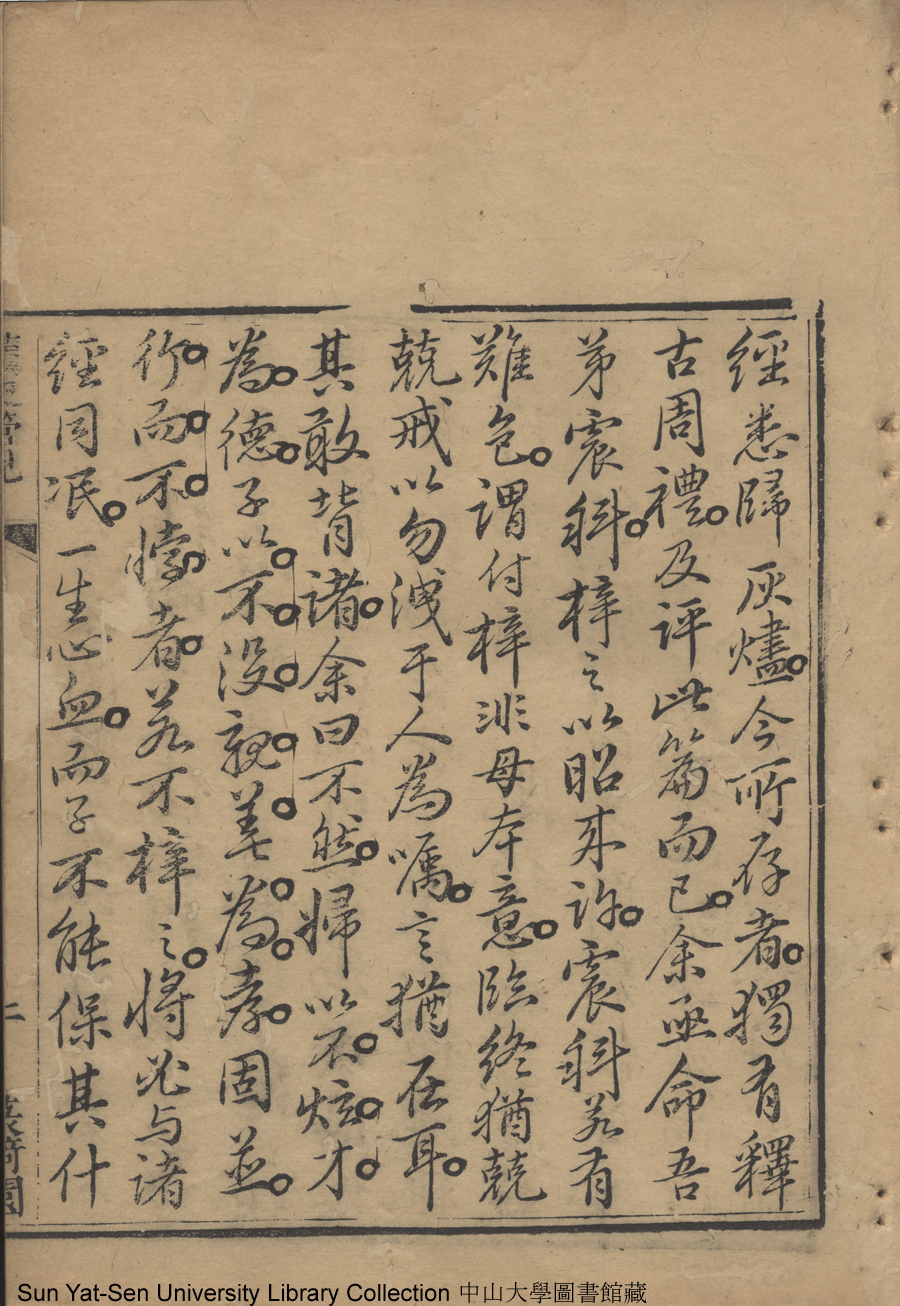 經悉歸灰燼今所存者獨有釋
古周禮及評此篇而已余亟命吾
弟震科梓之以昭來許震科若有
難色謂付梓非母本意臨終猶兢
兢戒以勿洩于人為囑言猶在耳
其敢背諸余曰不然婦以不炫才
為德子以不没親善為孝固並
行而不悖者若不梓之將必与諸
經同泯一生心血而子不能保其什
二
Sun Yat-Sen University Library Collection 中山大學圖書館藏